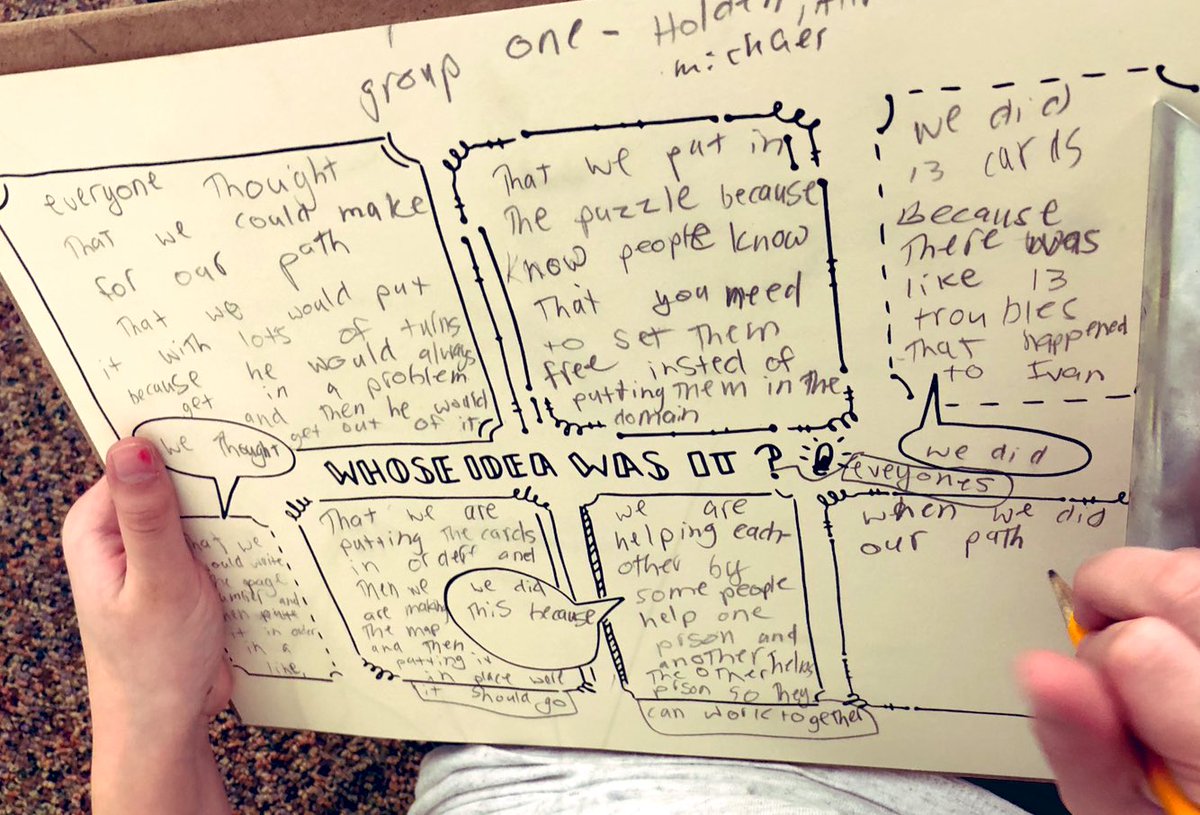 group one - Holden,
michael
everyone Thought
That we could make
for our path
That we would put
it with lots of turns
because he would always
get in a problem
and then he would
get out of it
That we put in
The puzzle because
Know people know
That you need
to set Them
free insted of
putting Them in The
domain
we did
13 cards
Because
There was
like 13
troubles
That happened
to Ivan
we Thought
WHOSE IDEA WAS IT?
we did
eveyones
That we
would write
the page
number and
then
it in order
in a
like
That we are
putting The cards
in order and
Then we
are making
The map
and then
putting it
in place were
it should go
we did
This because
we are
helping each
other by
some people
help one
prson and
another helps
The other
prson so they
can work together
when we did
our path